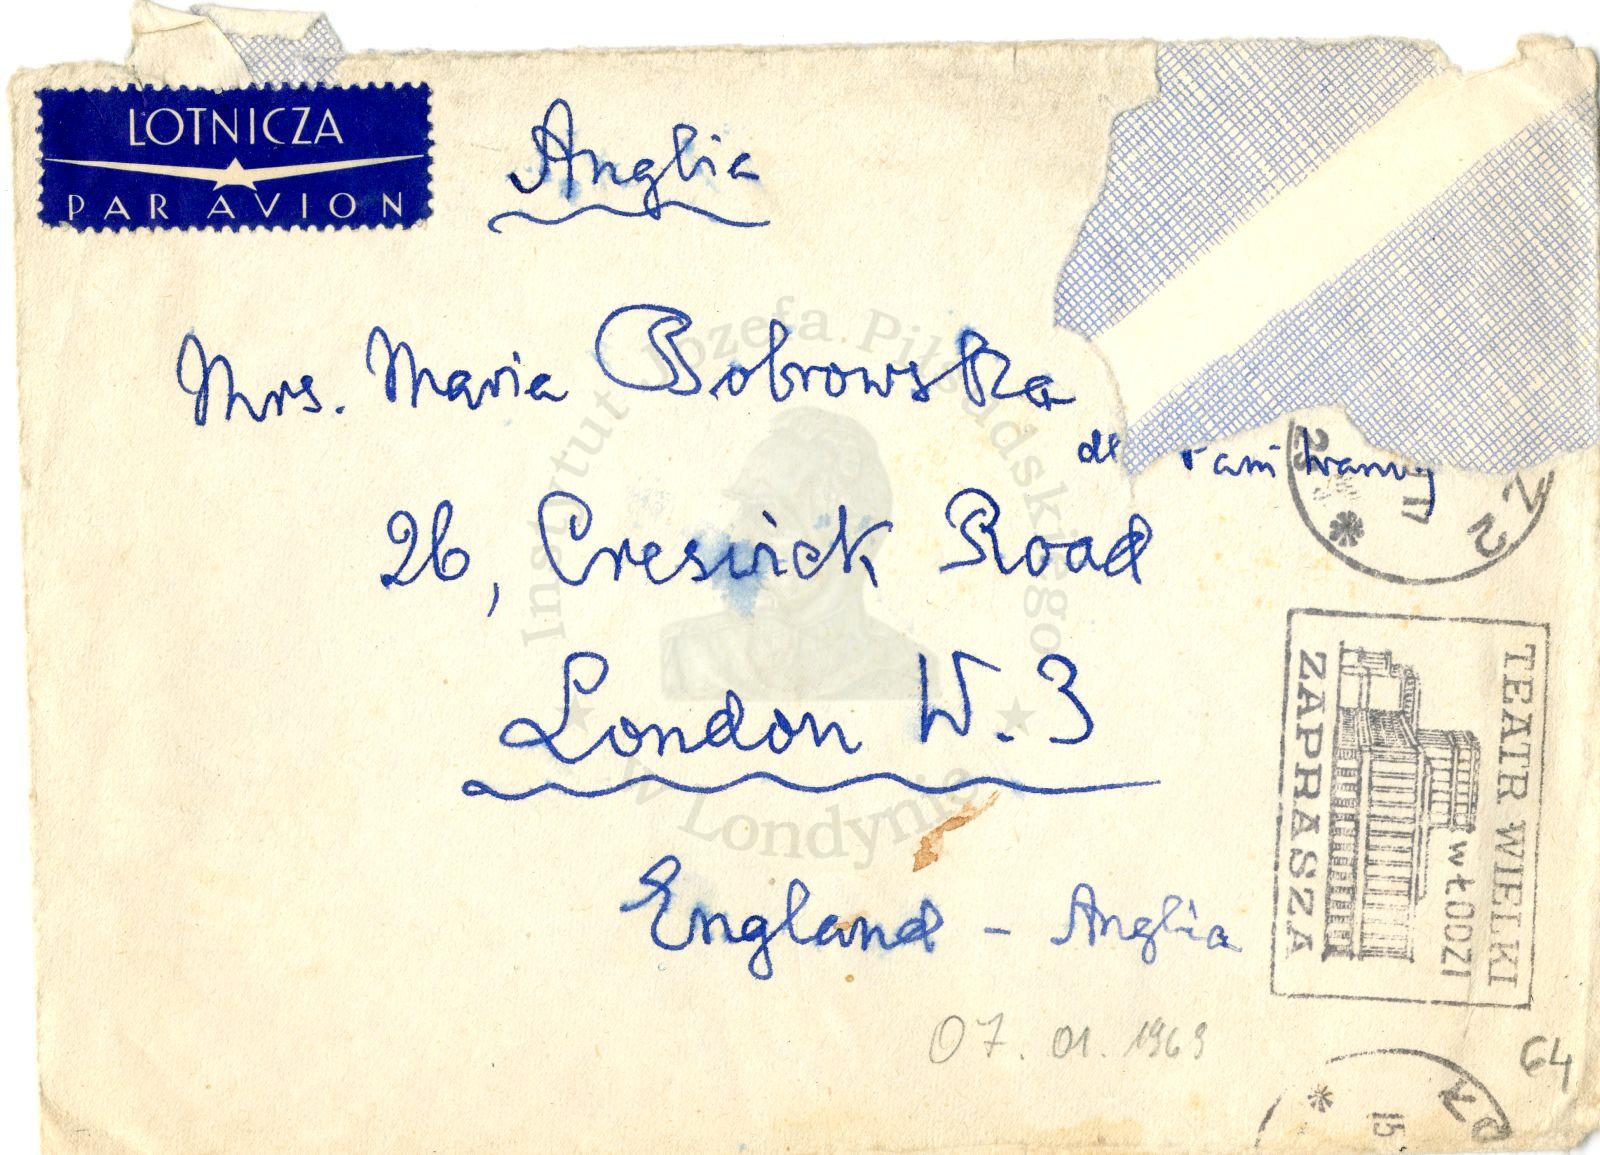 LOTNICZA
PAR AVION
Anglia
Mrs. Maria Bobrowska
26, Creswick Road
London W.3
England - Anglia
07. 01. 1969
64
TEATR WIELKI
w ŁODZI
ZAPRASZA
Instytut Józefa Piłsudskiego
w Londynie
15